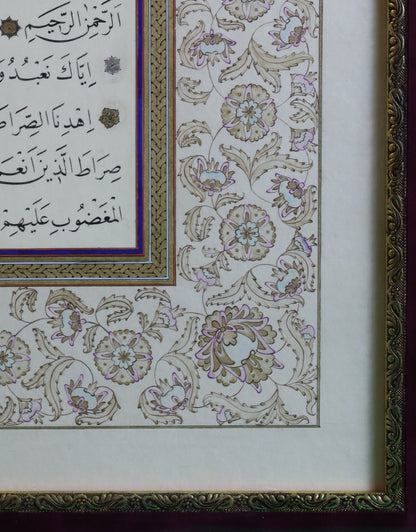 الرَّحْمٰنِ الرَّحِيمِ
اِيَّاكَ نَعْبُدُ وَ
اِهْدِنَا الصِّرَاطَ
صِرَاطَ الَّذِينَ اَنْعَمْ
الْمَغْضُوبِ عَلَيْهِمْ